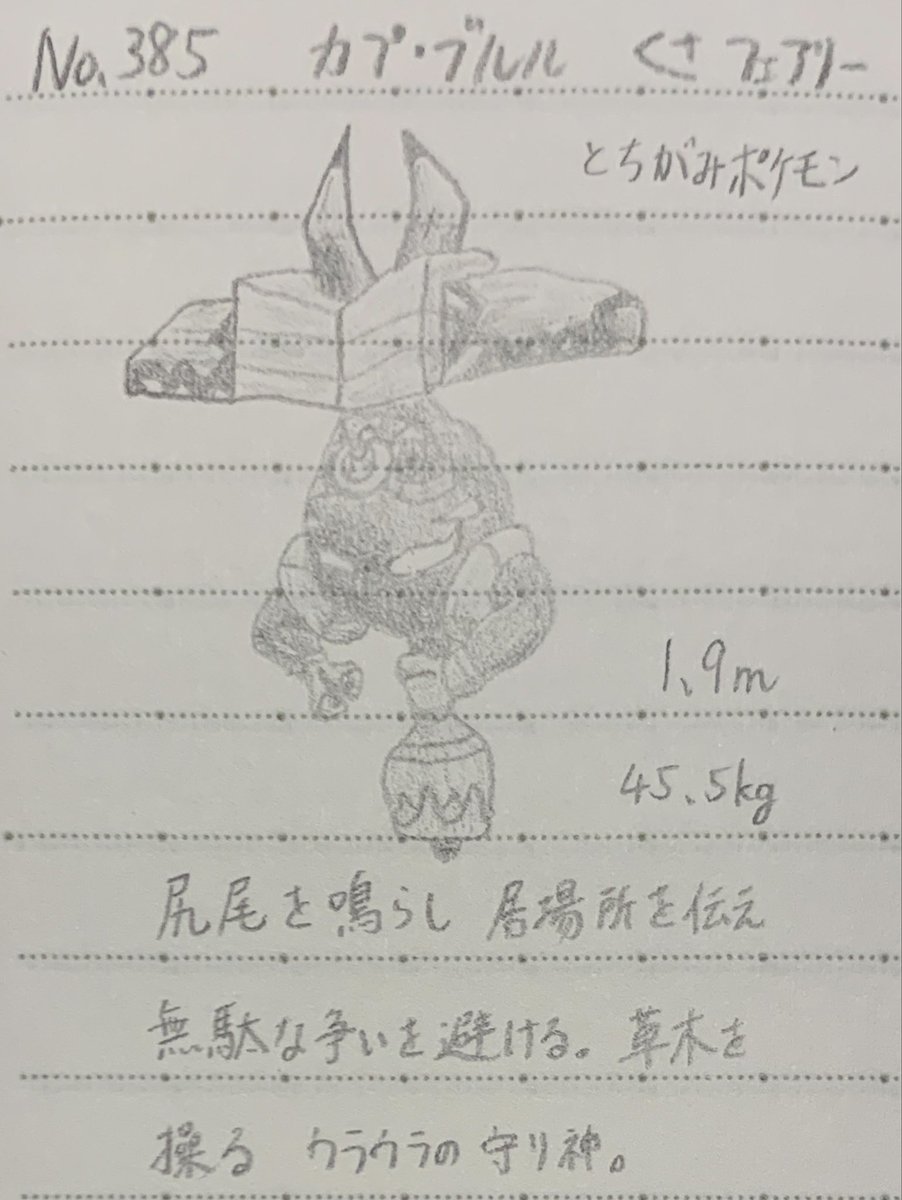 No.385 カプ・ブルル くさ フェアリー
とちがみポケモン
1.9m
45.5kg
尻尾を鳴らし 居場所を伝え
無駄な争いを避ける。草木を
操る ウラウラの守り神。